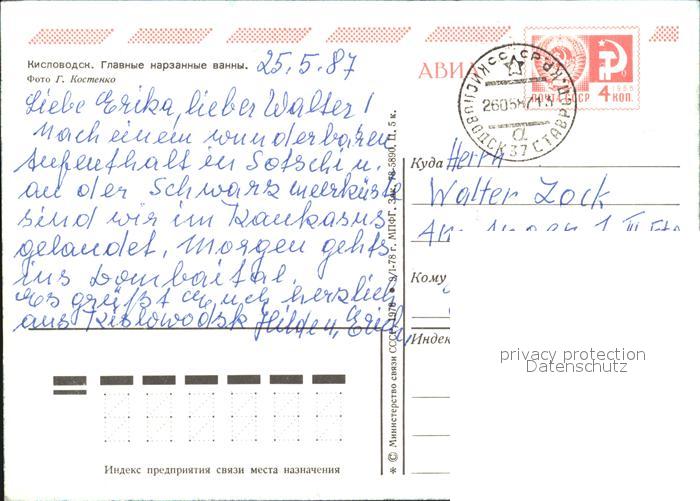 Кисловодск. Главные нарзанные ванны.
Фото Г. Костенко
25.5.87
Liebe Erika, lieber Walter!
Nach einem wunderbaren
Aufenthalt in Sotschi u.
an der Schwarzmeerküste
sind wir im Kaukasus
gelandet. Morgen gehts
ins Dombaital.
Es grüßt Euch herzlich
aus Kislowodsk Hilde u. Erich
АВИА
ПОЧТА СССР
1966
4 КОП.
КИСЛОВОДСК 37 СТАВР.
Куда Herrn
Walter Zock
Кому
Индекс
© Министерство связи СССР. 1978
privacy protection
Datenschutz
Индекс предприятия связи места назначения